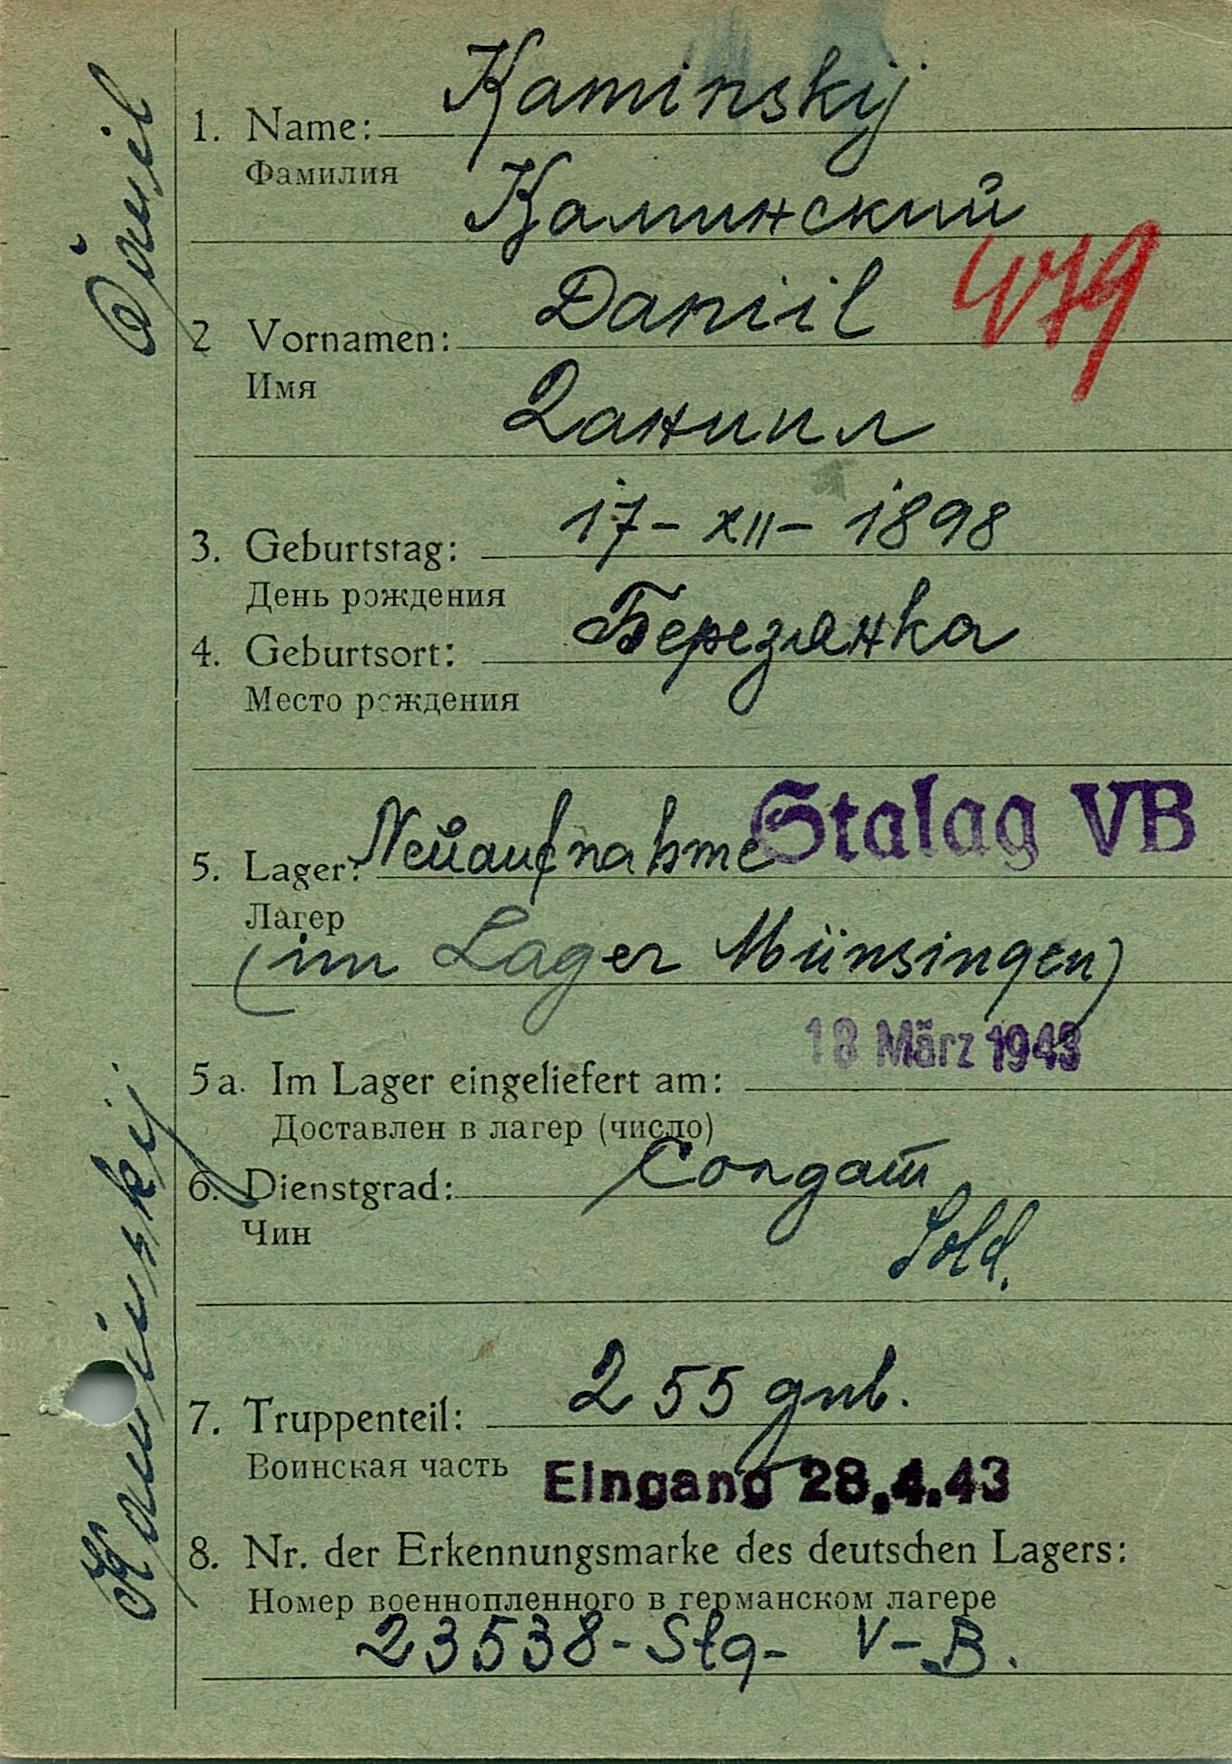 Kaminskij
1. Name:
Фамилия
Каминский
Daniil
479
2 Vornamen:
Имя
Даниил
17-XII-1898
3. Geburtstag:
День рождения
Березянка
4. Geburtsort:
Место рождения
Stalag VB
5. Lager: Neuaufnahme
Лагер
(im Lager Münsingen)
18 März 1943
5a. Im Lager eingeliefert am:
Доставлен в лагер (число)
Солдат
6. Dienstgrad:
Чин
Sold.
255
7. Truppenteil:
Воинская часть
Eingang 28.4.43
8. Nr. der Erkennungsmarke des deutschen Lagers:
Номер военнопленного в германском лагере
23538-Stg- V-B.
Kaminskij Daniil